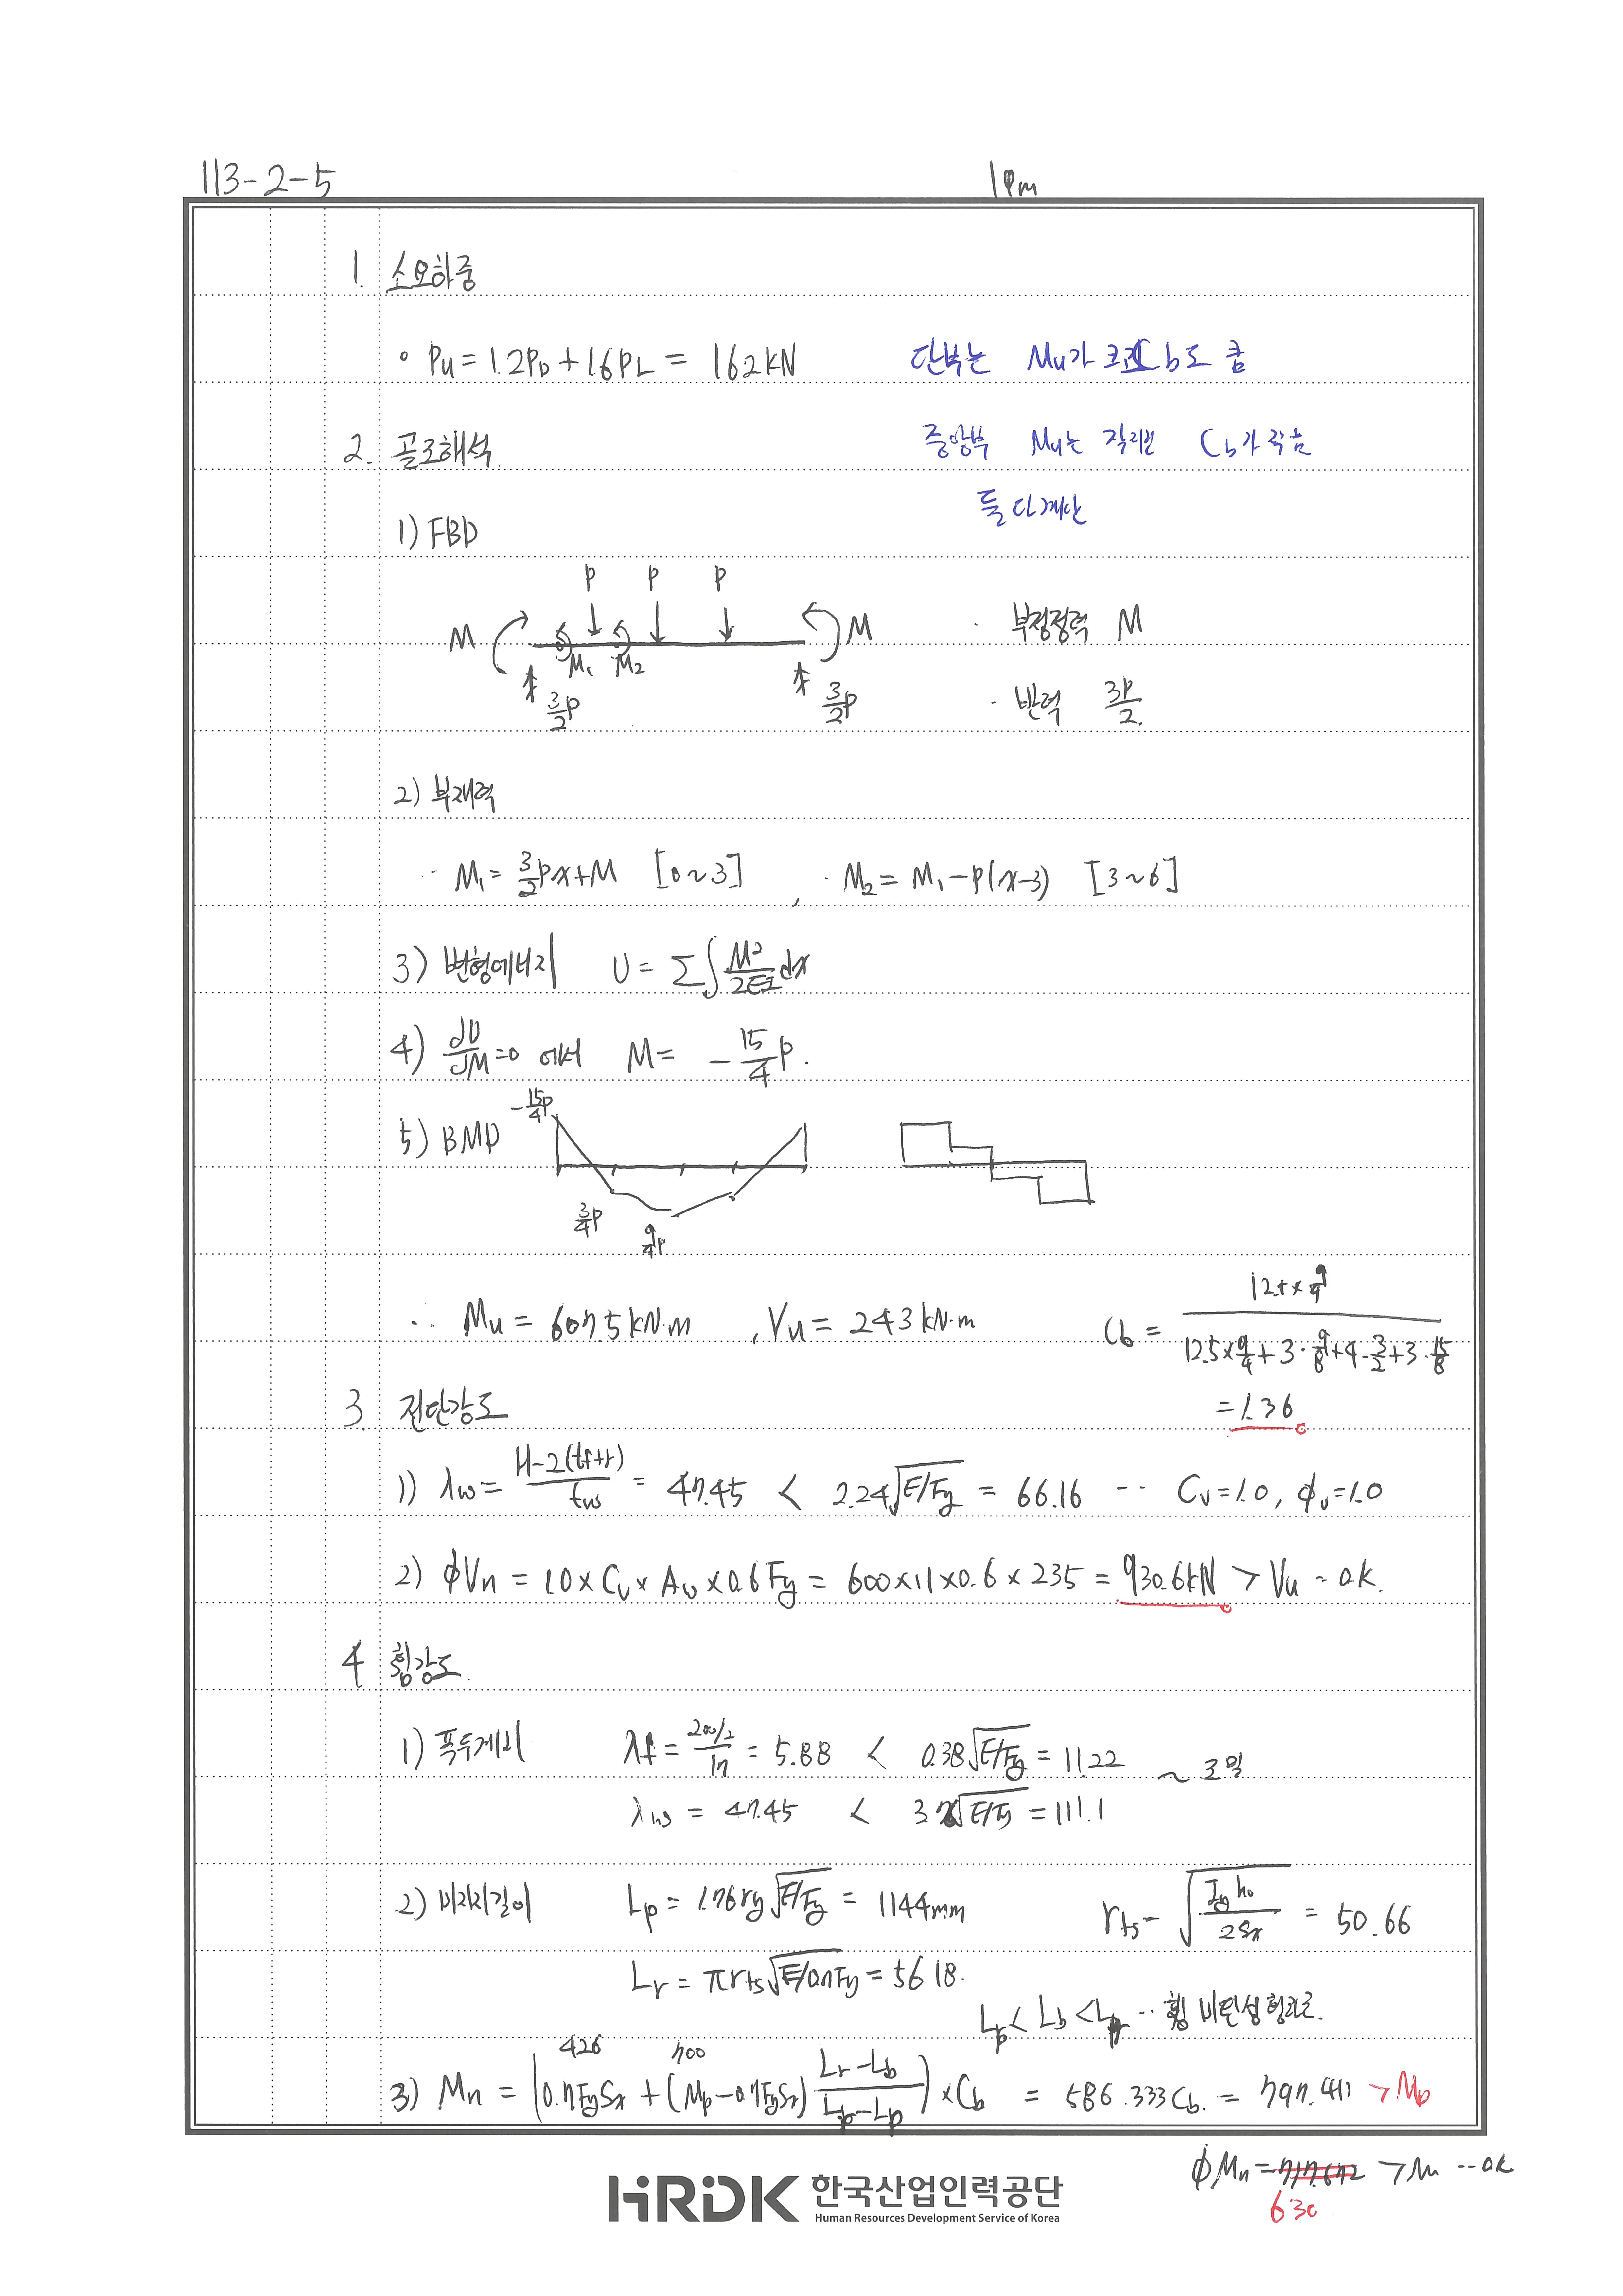 113-2-5
19m
1. 소요하중
∘ Pu = 1.2PD + 1.6PL = 162kN
단부는 Mu가 크고 Cb도 큼
2. 골조해석
중앙부 Mu는 작지만 Cb가 작음
둘다계산
1) FBD
P P P
M M₁ M₂ M
· 부정정력 M
3/2P 3/2P
· 반력 3P/2.
2) 부재력
·· M₁ = 3/2Px + M [0~3] , · M₂ = M₁ - P(x-3) [3~6]
3) 변형에너지 U = Σ∫M²/2EI dx
4) ∂U/∂M = 0 에서 M = -15/4P.
5) BMD
-15/4P
3/4P
9/4P
∴ Mu = 607.5kN·m , Vu = 243kN·m
Cb = 12.5×9/4 / 12.5×9/4 + 3·9/8 + 4·3/2 + 3·15/8
= 1.36
3. 전단강도
1) λw = H-2(tf+r)/tw = 47.45 < 2.24√E/Fy = 66.16 ·· Cv=1.0, ϕv=1.0
2) ϕVn = 1.0 × Cv × Aw × 0.6Fy = 600×11×0.6×235 = 930.6kN > Vu - ok.
4 휨강도
1) 폭두께비 λf = 200/2/17 = 5.88 < 0.38√E/Fy = 11.22 ~ 조밀
λw = 47.45 < 3.76√E/Fy = 111.1
2) 비지지길이 Lp = 1.76ry√E/Fy = 1144mm
rts = √Iy h₀/2Sx = 50.66
Lr = πrts√E/0.7Fy = 5618.
Lp < Lb < Lr ·· 횡 비탄성 형좌굴.
426 700
3) Mn = (0.7FySx + (Mp-0.7FySx) Lr-Lb/Lr-Lp) × Cb = 586.333Cb. = 797.411 > Mp
ϕMn = 717.672 > Mu ·· ok
630
HRDK 한국산업인력공단
Human Resources Development Service of Korea